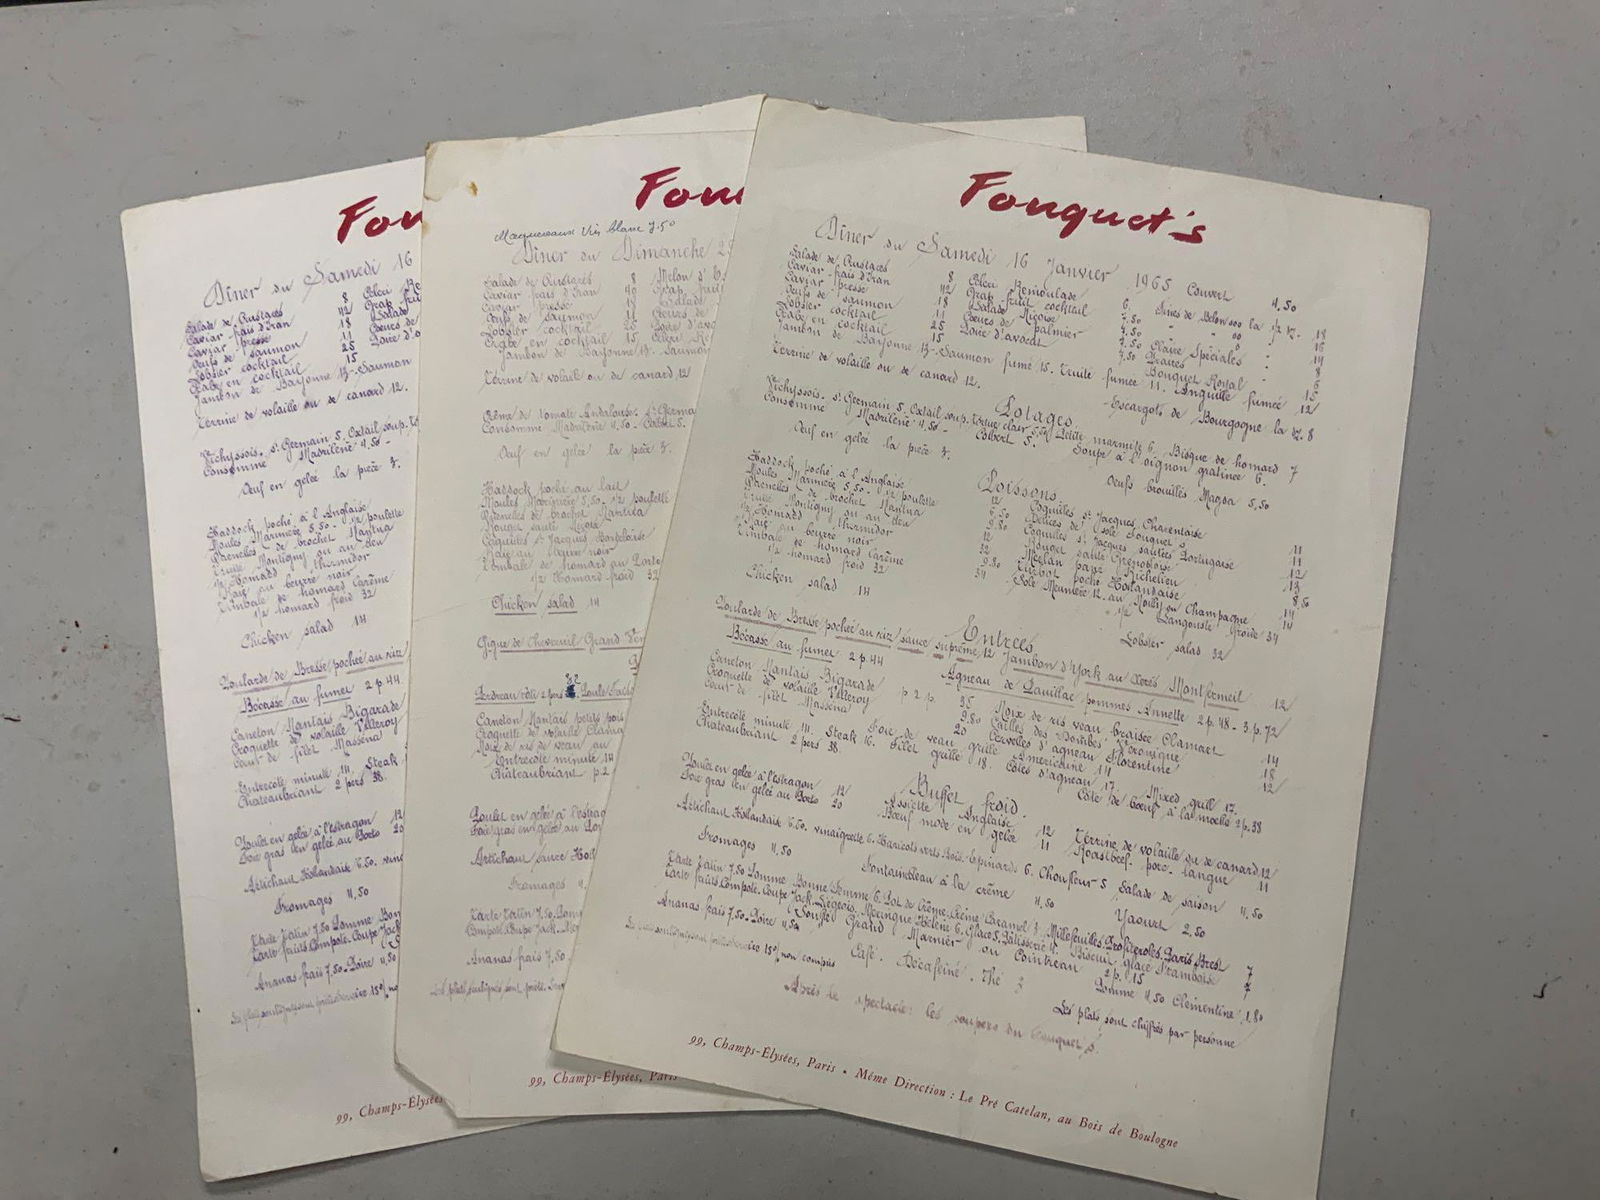 Fou
Dîner du Samedi 16
Salade de Crustacés 8 Céleri Ré
Caviar frais d'Iran 42 Grap frui
Caviar pressé 18 Salade
Œufs de saumon 11 Cœurs de
Lobster cocktail 25 Poire d'a
Crabe en cocktail 15
Jambon de Bayonne 13 - Saumon
Terrine de volaille ou de canard 12.
Vichyssois. St Germain 5. Oxtail soup. T
Consommé Madrilène 4,50 -
Œuf en gelée la pièce 3.
Haddock poché à l'Anglaise
Moules Marinière 5.50 - 1/2 poulette
Quenelles de brochet Mantua
Truite Montigny ou au bleu
1/2 Homard thermidor
Raie au beurre noir
Timbale de homard Carême
1/2 homard froid 32
Chicken salad 14
Poularde de Bresse pochée au riz
Bécasse au fumet 2 p. 44
Caneton Nantais Bigarade
Croquette de volaille Villeroy
Cœur de filet Masséna
Entrecôte minute 14. Steak
Chateaubriant 2 pers 38.
Poulet en gelée à l'estragon 12
Foie gras en gelée au Porto 20
Artichaut Hollandaise 6.50. vin
Fromages 4,50
Tarte Tatin 7,50 Pomme Bon
Tarte fruits. Compote. Coupe Jack
Ananas frais 7,50 - Poire 4,50
Les plats soulignés sont prêts. Service 15% no
99, Champs-Élysées
Fou
Maquereaux Vin blanc 7.50
Dîner du Dimanche 2
Salade de Crustacés 8 Melon d'
Caviar frais d'Iran 40 Grap frui
Caviar pressé 18 Salade
Œufs de saumon 11 Cœurs de
Lobster cocktail 25 Poire d'avo
Crabe en cocktail 15 Céleri Ré
Jambon de Bayonne 13 - Saumon
Terrine de volaille ou de canard 12
Crème de tomate Andalouse. St Germa
Consommé Madrilène 4.50 - Colbert 5.
Œuf en gelée la pièce 3.
Haddock poché au lait
Moules Marinière 5,50. 1/2 poulette
Quenelles de brochet Mantua
Rouget sauté Niçois
Coquilles St Jacques Bordelaise
Raie au beurre noir
Timbale de homard au Porto
1/2 Homard froid 32
Chicken salad 14
Gigue de Chevreuil Grand Ven
Perdreau rôti 2 pers 32 Poule Fais
Caneton Nantais petits pois
Croquette de volaille Clama
Noix de ris de veau au
Entrecôte minute 14
Châteaubriant p. 2
Poulet en gelée à l'estrag
Foie gras en gelée au Por
Artichaut sauce Holl
Fromages 4
Tarte Tatin 7,50. Pom
Compote. Coupe Jack
Ananas frais 7,50
Les plats soulignés sont prêts. Ser
99, Champs-Élysées, Paris
Fouquet's
Dîner du Samedi 16 Janvier 1965 Couvert 4,50
Salade de Crustacés 8 Céleri Rémoulade 6. Fines de Belon 000 la 1/2 dz. 18
Caviar frais d'Iran 42 Grap fruit cocktail 7,50 " 00 " 16
Caviar pressé 18 Salade Niçoise 0 " 14
Œufs de saumon 11 Cœurs de palmier 7.50 Claire Spéciales " 14
Lobster cocktail 25 Poire d'avocat 7.50 Praires " 8
Crabe en cocktail 15 Bouquet Royal 15
Jambon de Bayonne 13 - Saumon fumé 15. Truite fumée 11. Anguille fumée 12
Terrine de volaille ou de canard 12. Escargots de Bourgogne la dz. 8
Potages
Vichyssois. St Germain 5. Oxtail soup. Tortue clair 5,50 Petite marmite 6. Bisque de homard 7
Consommé Madrilène 4,50 - Colbert 5. Soupe à l'oignon gratinée 6.
Œuf en gelée la pièce 3. Œufs brouillés Magda 5,50
Poissons
Haddock poché à l'Anglaise 12 Coquilles St Jacques Charentaise 11
Moules Marinière 5.50. 1/2 poulette 9.50 Délices de Sole Fouquet's 11
Quenelles de brochet Mantua 9.80 Coquilles St Jacques sautées Portugaise 11
Truite Montigny ou au bleu 12 Rouget sauté Grenobloise 12
1/2 Homard thermidor 32 Merlan pané Richelieu 13
Raie au beurre noir 9.80 Turbot poché Hollandaise 8,50
Timbale de homard Carême 34 Sole Meunière 12. au Noilly ou Champagne 14
1/2 homard froid 32 1/2 Langouste froide 34
Chicken salad 14 Lobster salad 32
Entrées
Poularde de Bresse pochée au riz sauce suprême 12 Jambon d'York au Xérès Montfermeil 12
Bécasse au fumet 2 p 44 Agneau de Pauillac pommes Annette 2 p. 48 - 3 p. 72
Caneton Nantais Bigarade p 2 p. 35 Noix de ris veau braisée Clamart 14
Croquette de volaille Villeroy 9.80 Cailles des Dombes Véronique 18
Cœur de filet Masséna 20 Cervelles d'agneau Florentine 12
Foie de veau grillé Américaine 14 Mixed grill 17.
Entrecôte minute 14. Steak 16. Filet grillé 18. Côtes d'agneau 17. Côte de bœuf à la moelle 2 p. 38
Chateaubriant 2 pers 38.
Buffet froid.
Poulet en gelée à l'estragon 12 Assiette Anglaise 12 Terrine de volaille ou de canard 12
Foie gras en gelée au Porto 20 Bœuf mode en gelée 11 Roastbeef. porc. langue 11
Artichaut Hollandaise 6.50. vinaigrette 6. Haricots verts. Pois. Epinards 6. Choufleur 5 Salade de saison 4,50
Fromages 4,50 Fontainebleau à la crème 4,50 Yaourt 2,50
Tarte Tatin 7,50 Pomme Bonne femme 6. Pot de Crème. Crème Caramel 4 Millefeuilles. Profiteroles. Paris Brest 7
Tarte fruits. Compote. Coupe Jack. Liégeois. Meringue. Hélène 6. Glace 5. Pâtisserie 4. Biscuit glacé framboise 7
Soufflé Grand Marnier ou Cointreau 2 p. 15
Ananas frais 7,50 - Poire 4,50 Pomme 4,50 Clémentine 1.80
Café. Décaféiné. Thé 3
Les plats soulignés sont prêts. Service 15% non compris Les plats sont chiffrés par personne
Après le spectacle : les soupers du Fouquet's.
99, Champs-Élysées, Paris • Même Direction : Le Pré Catelan, au Bois de Boulogne